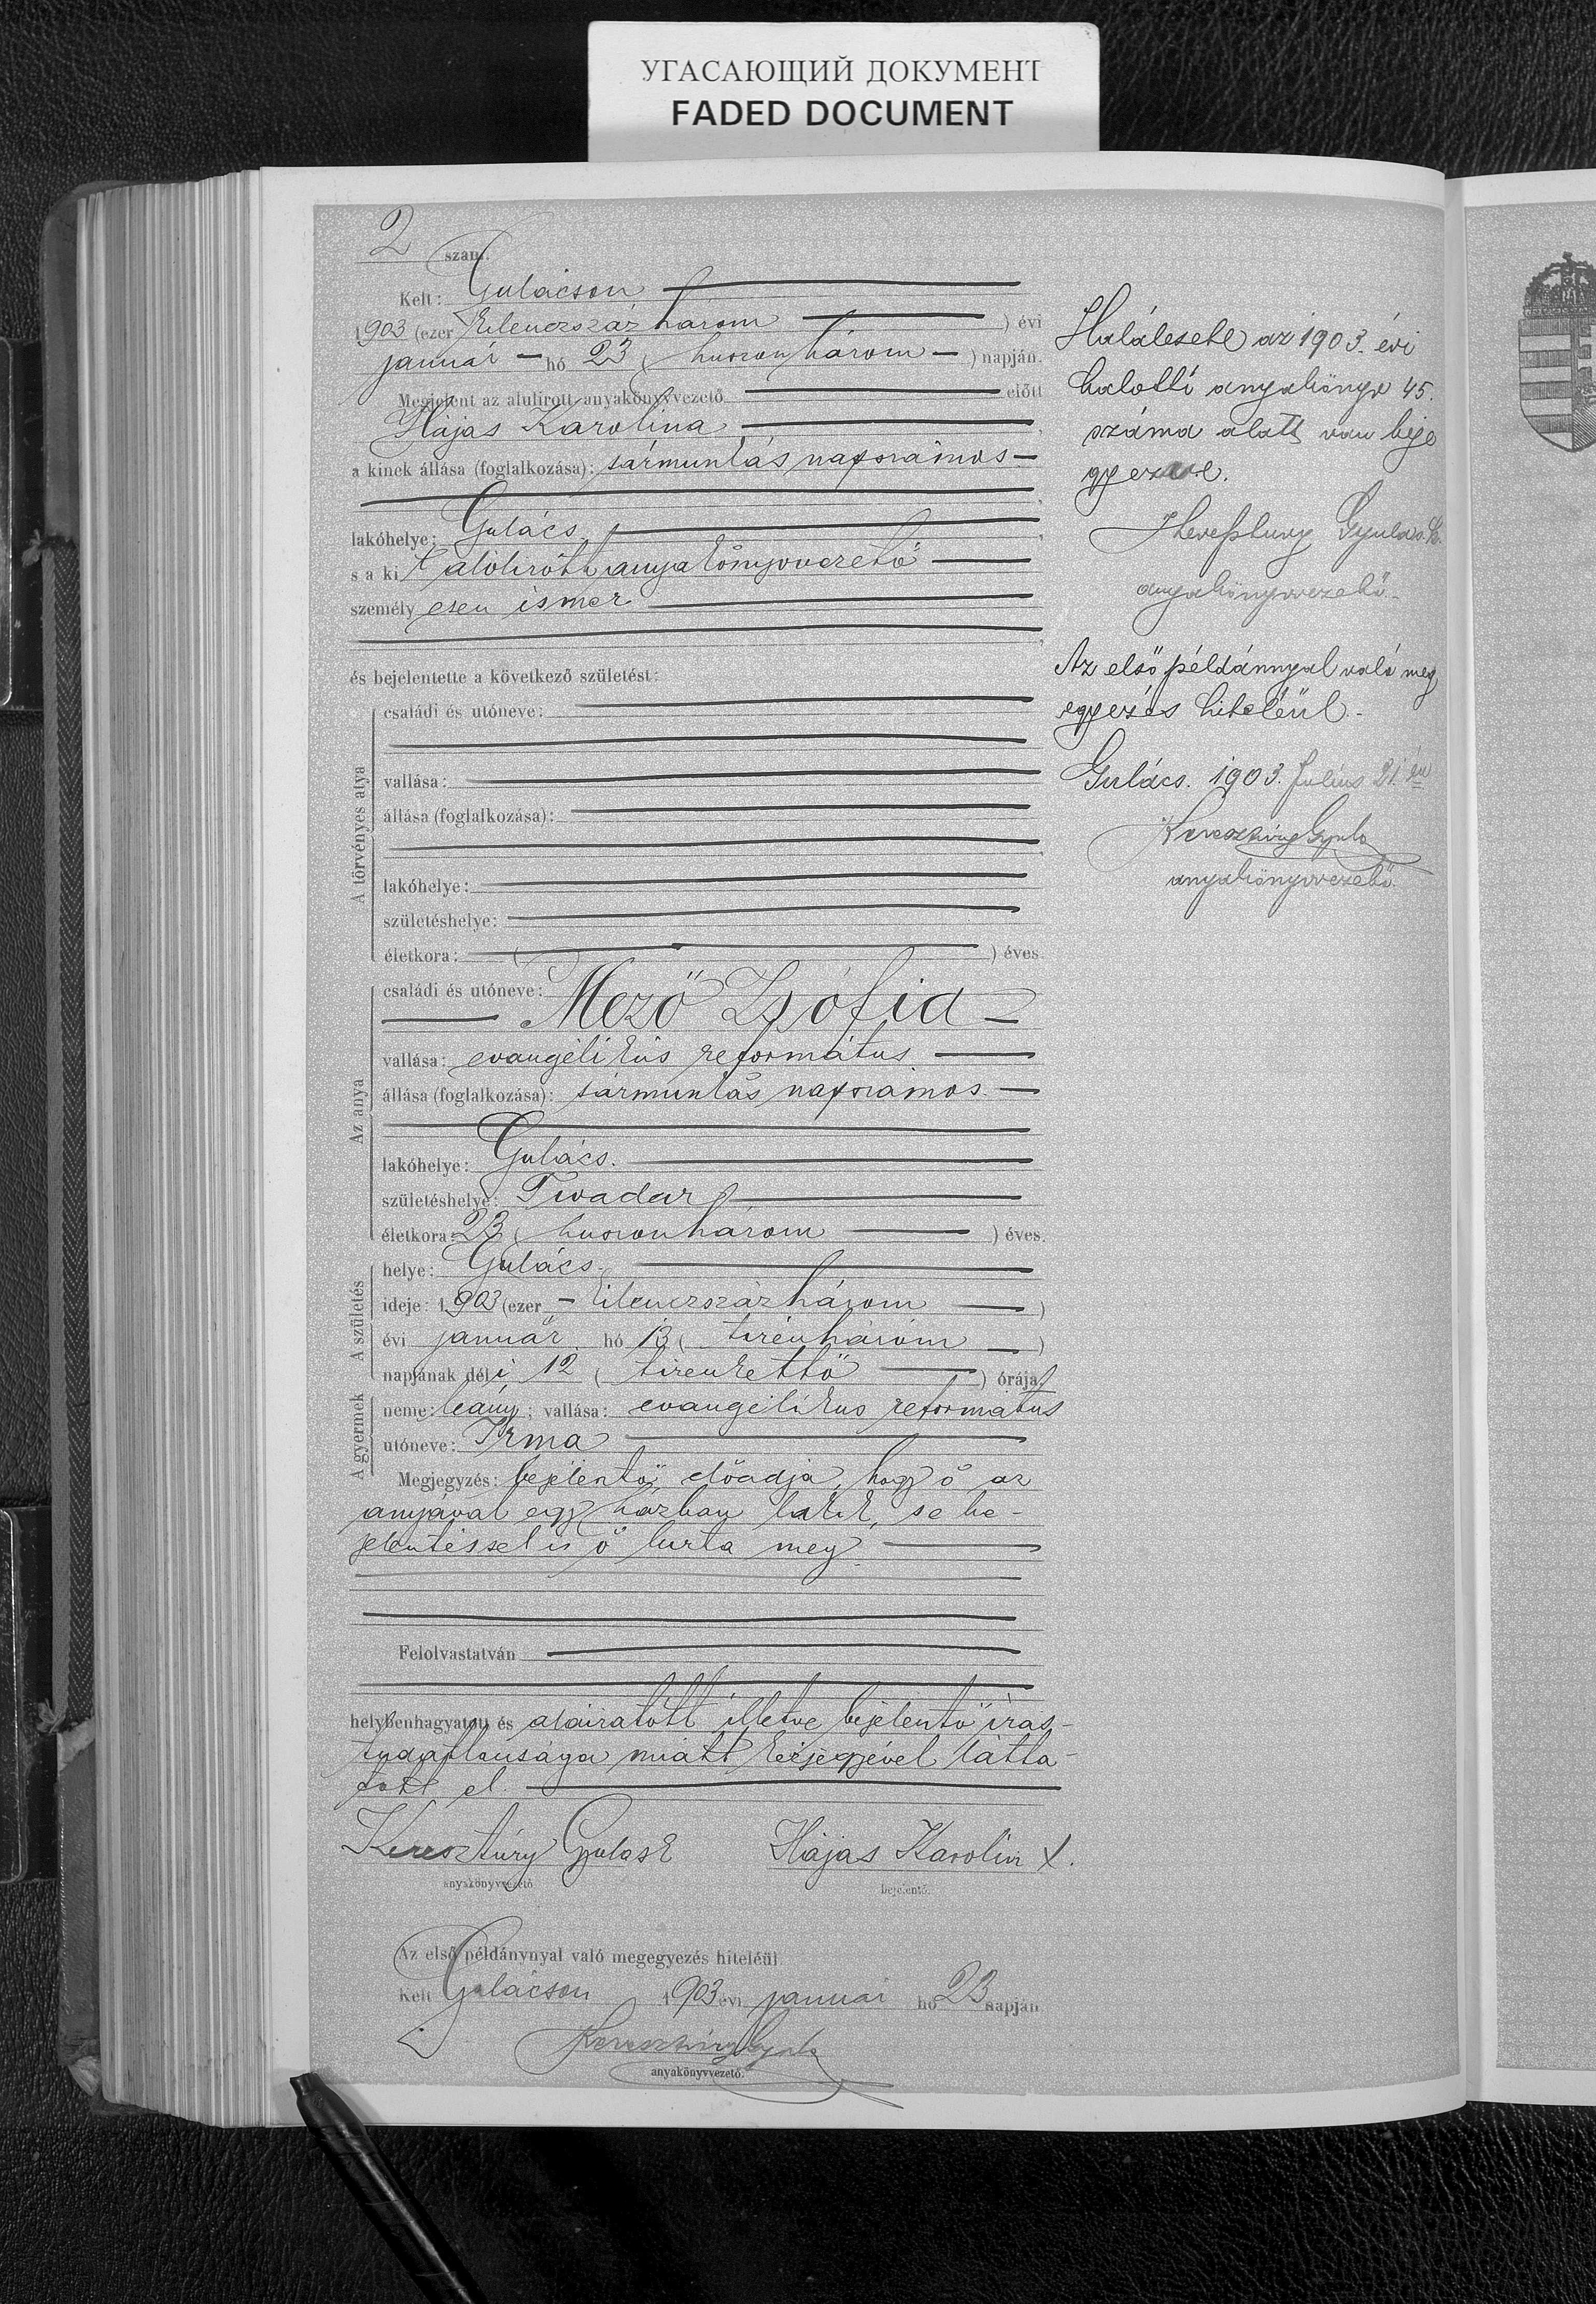 УГАСАЮЩИЙ ДОКУМЕНТ
FADED DOCUMENT
2 szám.
Kelt: Gulácson
1903 (ezer kilenczszáz három ) évi
január hó 23 ( huszonhárom ) napján.
Megjelent az alulirott anyakönyvvezető előtt
Hajas Karolina
a kinek állása (foglalkozása): sármunkás napszámos
lakóhelye: Gulács
s a kit alólirott anyakönyvvezető
személyesen ismer
és bejelentette a következő születést:
A törvényes atya
családi és utóneve:
vallása:
állása (foglalkozása):
lakóhelye:
születéshelye:
életkora: ( ) éves.
Az anya
családi és utóneve:
Mező Zsófia
vallása: evangélikus református
állása (foglalkozása): sármunkás napszámos
lakóhelye: Gulács.
születéshelye: Tivadar
életkora: 23 ( huszonhárom ) éves.
A születés
helye: Gulács
ideje: 1903 (ezer kilenczszázhárom )
évi január hó 13 ( tizenhárom )
napjának déli 12 ( tizenkettő ) órája
A gyermek
neme: leány; vallása: evangélikus református
utóneve: Irma
Megjegyzés: bejelentő előadja, hogy ő az
anyával egy házban lakik, s e be-
jelentéssel is ő bizta meg.
Felolvastatván
helybenhagyatott és aláiratott illetve bejelentő irás-
tudatlansága miatt kézjegyével látta-
tott el.
Keresztúry Gyula sk Hajas Karolin X.
anyakönyvvezető bejelentő.
Az első példánynyal való megegyezés hiteléül.
Kelt Gulácson 1903 évi január hó 23 napján
Keresztúry Gyula
anyakönyvvezető.
Halálesete az 1903. évi
halotti anyakönyv 45.
száma alatt van beje
gyezve.
Keresztury Gyula s.k.
anyakönyvvezető.
Az első példánnyal való meg
egyezés hiteléül.
Gulács. 1903. Julius 31.én
Keresztúry Gyula
anyakönyvvezető.